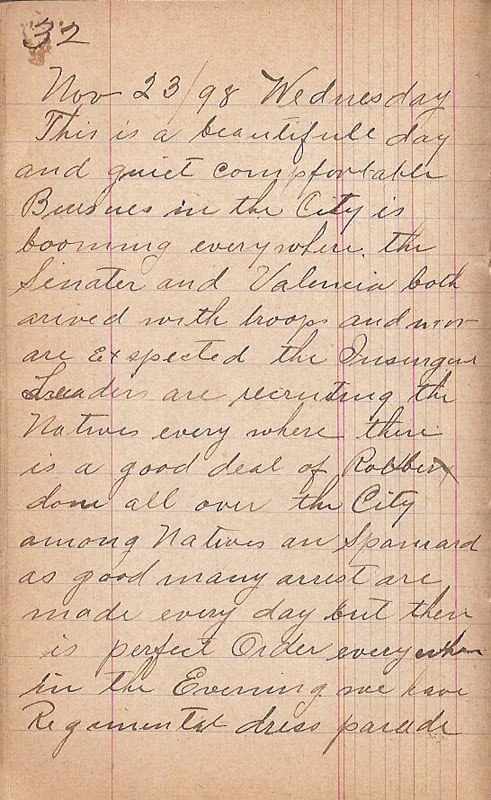 32
Nov 23/98 Wednesday
This is a beautifull day
and quiet compfortable
Buisnes in the City is
booming everywhere. the
Sinater and Valencia both
arived with troops and mor
are Exspected the Insurgen
Leaders are recruting the
Natives every where there
is a good deal of Robbery
done all over the City
among Natives an Spaniard
as good many arrest are
made every day but ther
is perfect Order everywhere
in the Evening we have
Regimental dress parade